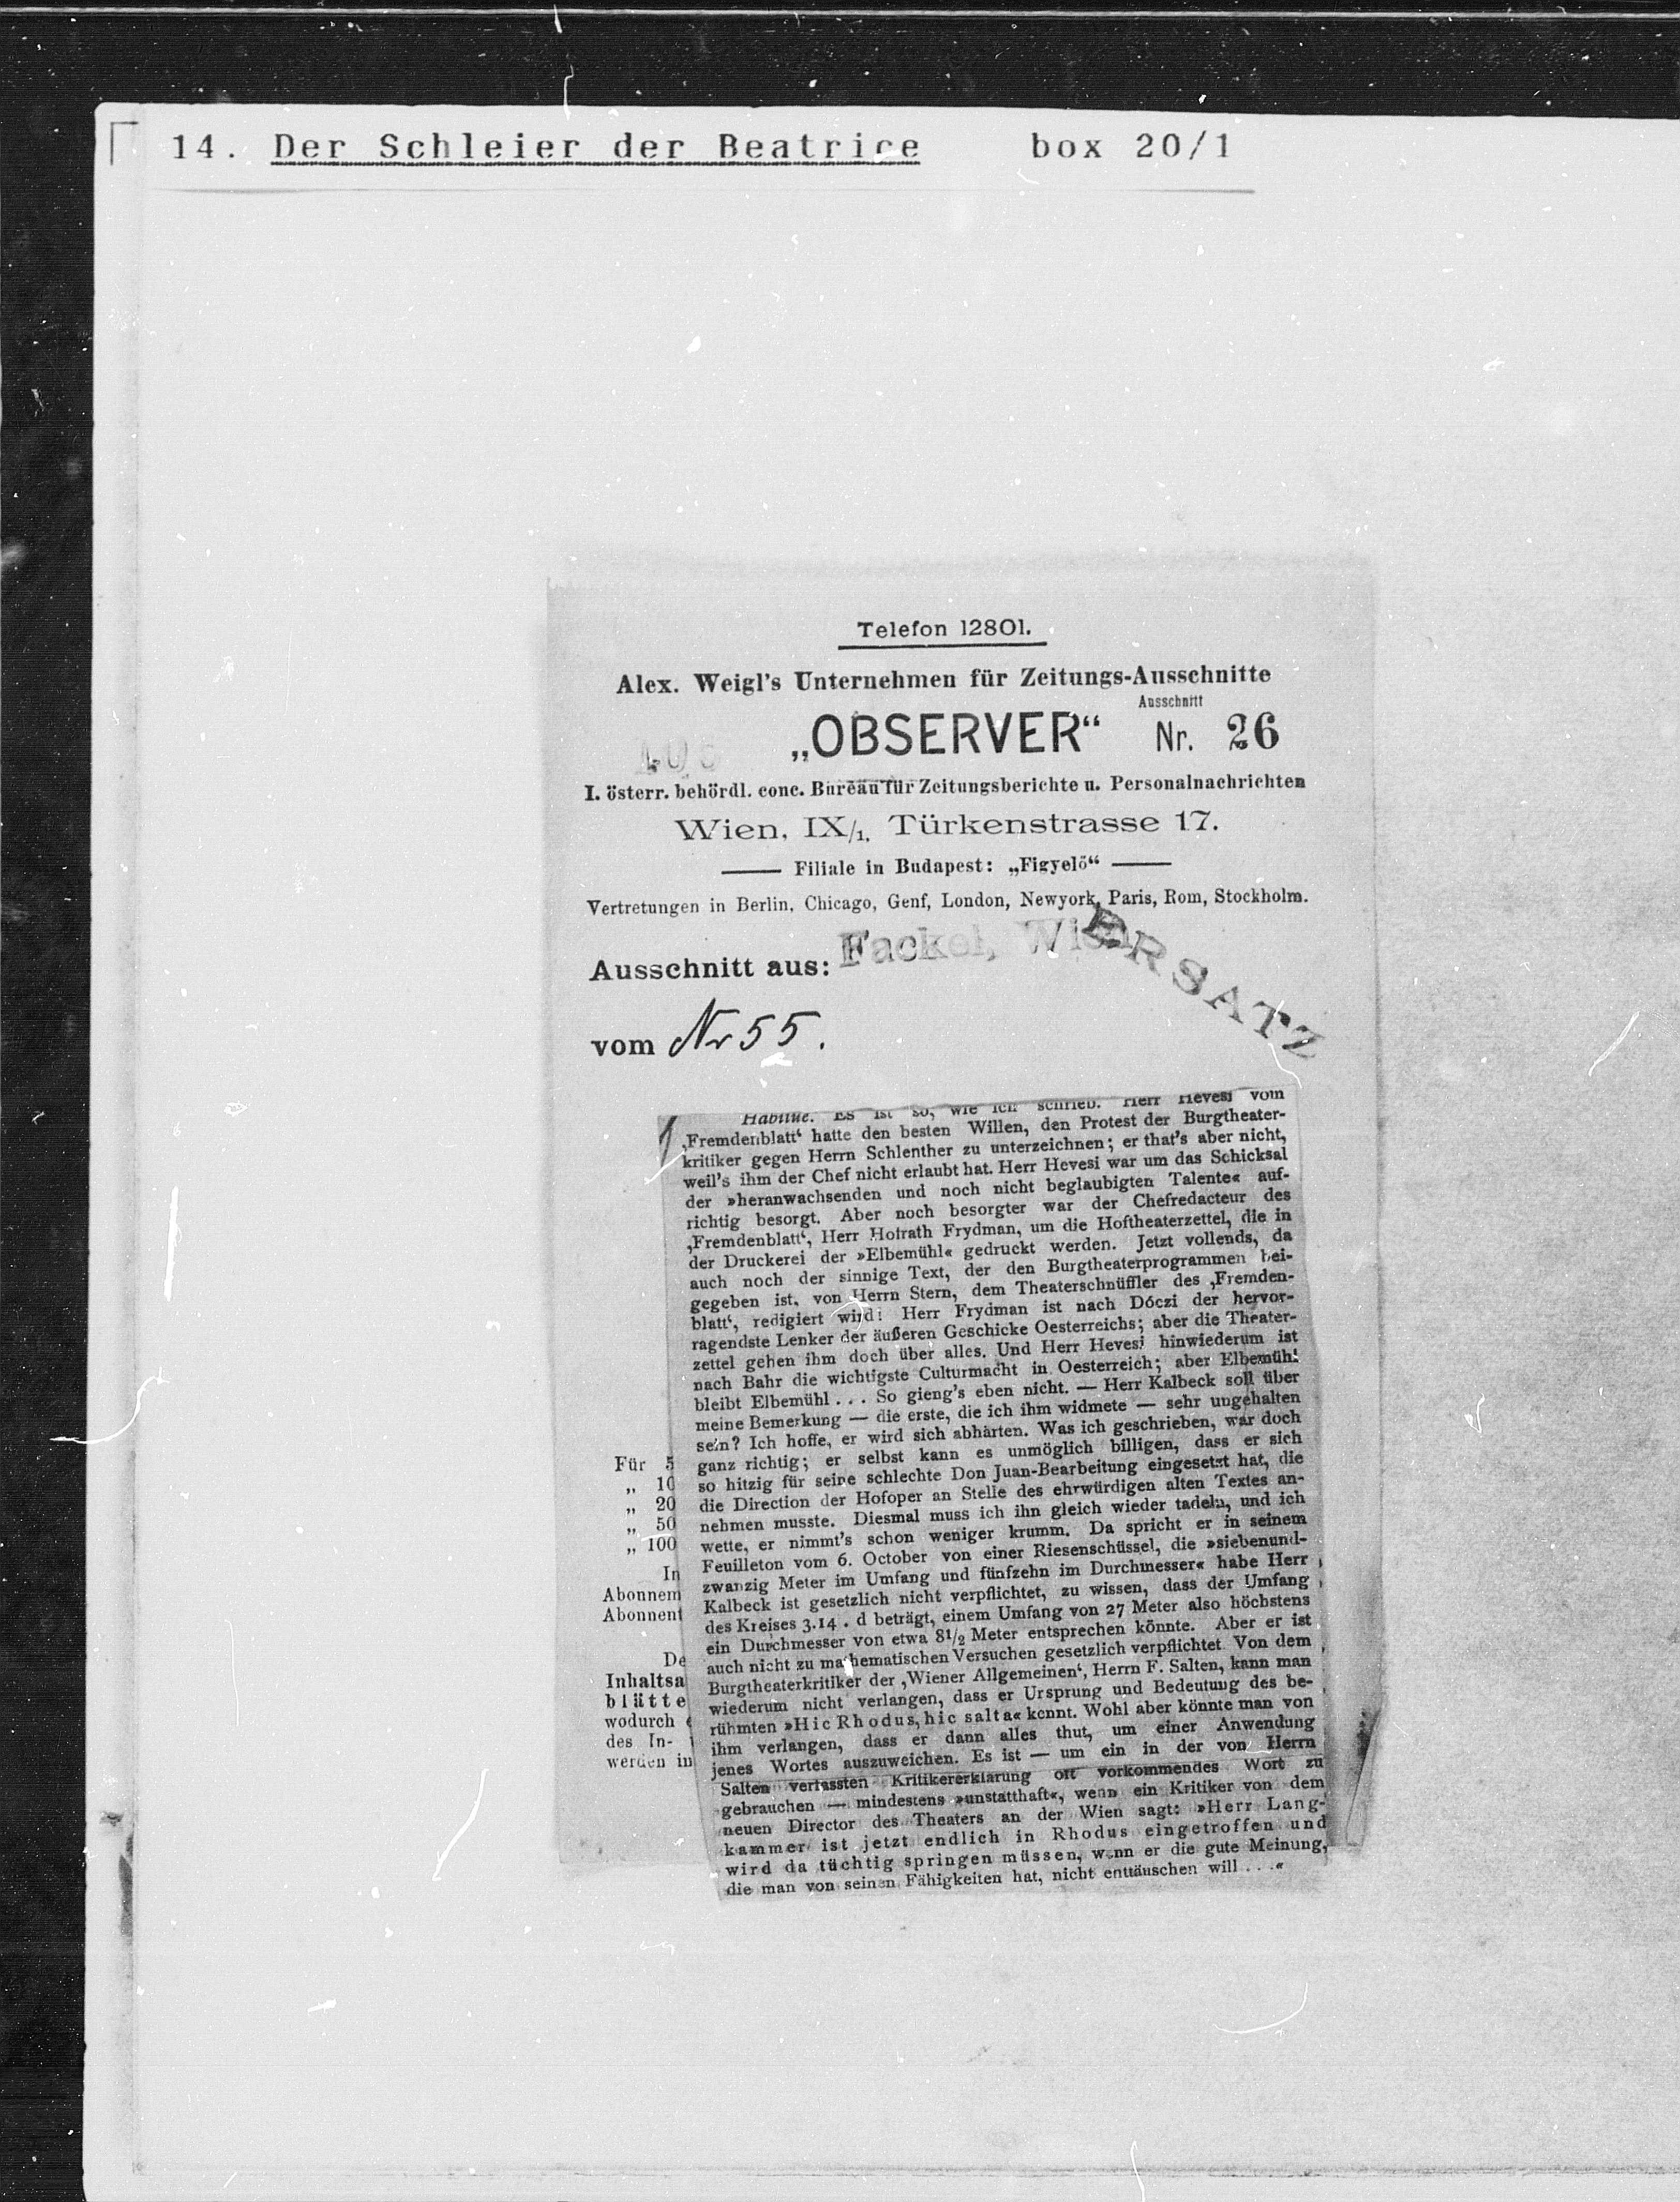 14. Der Schleier der Beatrice box 20/1
Telefon 12801.
Alex. Weigl's Unternehmen für Zeitungs-Ausschnitte
Ausschnitt
„OBSERVER“ Nr. 26
I. österr. behördl. conc. Bureau für Zeitungsberichte u. Personalnachrichten
Wien, IX/1, Türkenstrasse 17.
Filiale in Budapest: „Figyelő“
Vertretungen in Berlin, Chicago, Genf, London, Newyork, Paris, Rom, Stockholm.
Ausschnitt aus: Fackel, Wien
ERSATZ
vom Nr 55.
Habitué. Es ist so, wie ich schrieb. Herr Hevesi vom
‚Fremdenblatt‘ hatte den besten Willen, den Protest der Burgtheater-
kritiker gegen Herrn Schlenther zu unterzeichnen; er that's aber nicht,
weil's ihm der Chef nicht erlaubt hat. Herr Hevesi war um das Schicksal
der »heranwachsenden und noch nicht beglaubigten Talente« auf-
richtig besorgt. Aber noch besorgter war der Chefredacteur des
‚Fremdenblatt‘, Herr Hofrath Frydman, um die Hoftheaterzettel, die in
der Druckerei der »Elbemühl« gedruckt werden. Jetzt vollends, da
auch noch der sinnige Text, der den Burgtheaterprogrammen bei-
gegeben ist, von Herrn Stern, dem Theaterschnüffler des ‚Fremden-
blatt‘, redigiert wird! Herr Frydman ist nach Dóczi der hervor-
ragendste Lenker der äußeren Geschicke Oesterreichs; aber die Theater-
zettel gehen ihm doch über alles. Und Herr Hevesi hinwiederum ist
nach Bahr die wichtigste Culturmacht in Oesterreich; aber Elbemühl
bleibt Elbemühl . . . So gieng's eben nicht. — Herr Kalbeck soll über
meine Bemerkung — die erste, die ich ihm widmete — sehr ungehalten
sein? Ich hoffe, er wird sich abhärten. Was ich geschrieben, war doch
ganz richtig; er selbst kann es unmöglich billigen, dass er sich
so hitzig für seine schlechte Don Juan-Bearbeitung eingesetzt hat, die
die Direction der Hofoper an Stelle des ehrwürdigen alten Textes an-
nehmen musste. Diesmal muss ich ihn gleich wieder tadeln, und ich
wette, er nimmt's schon weniger krumm. Da spricht er in seinem
Feuilleton vom 6. October von einer Riesenschüssel, die »siebenund-
zwanzig Meter im Umfang und fünfzehn im Durchmesser« habe Herr
Kalbeck ist gesetzlich nicht verpflichtet, zu wissen, dass der Umfang
des Kreises 3.14 . d beträgt, einem Umfang von 27 Meter also höchstens
ein Durchmesser von etwa 8 1/2 Meter entsprechen könnte. Aber er ist
auch nicht zu mathematischen Versuchen gesetzlich verpflichtet. Von dem
Burgtheaterkritiker der ‚Wiener Allgemeinen‘, Herrn F. Salten, kann man
wiederum nicht verlangen, dass er Ursprung und Bedeutung des be-
rühmten »Hic Rhodus, hic salta« kennt. Wohl aber könnte man von
ihm verlangen, dass er dann alles thut, um einer Anwendung
jenes Wortes auszuweichen. Es ist — um ein in der von Herrn
Salten verfassten Kritikererklärung oft vorkommendes Wort zu
gebrauchen — mindestens »unstatthaft«, wenn ein Kritiker von dem
neuen Director des Theaters an der Wien sagt: »Herr Lang-
kammer ist jetzt endlich in Rhodus eingetroffen und
wird da tüchtig springen müssen, wenn er die gute Meinung,
die man von seinen Fähigkeiten hat, nicht enttäuschen will . . .«
Für 5
„ 10
„ 20
„ 50
„ 100
In
Abonnem
Abonnent
De
Inhaltsa
blätte
wodurch
des In-
werden in